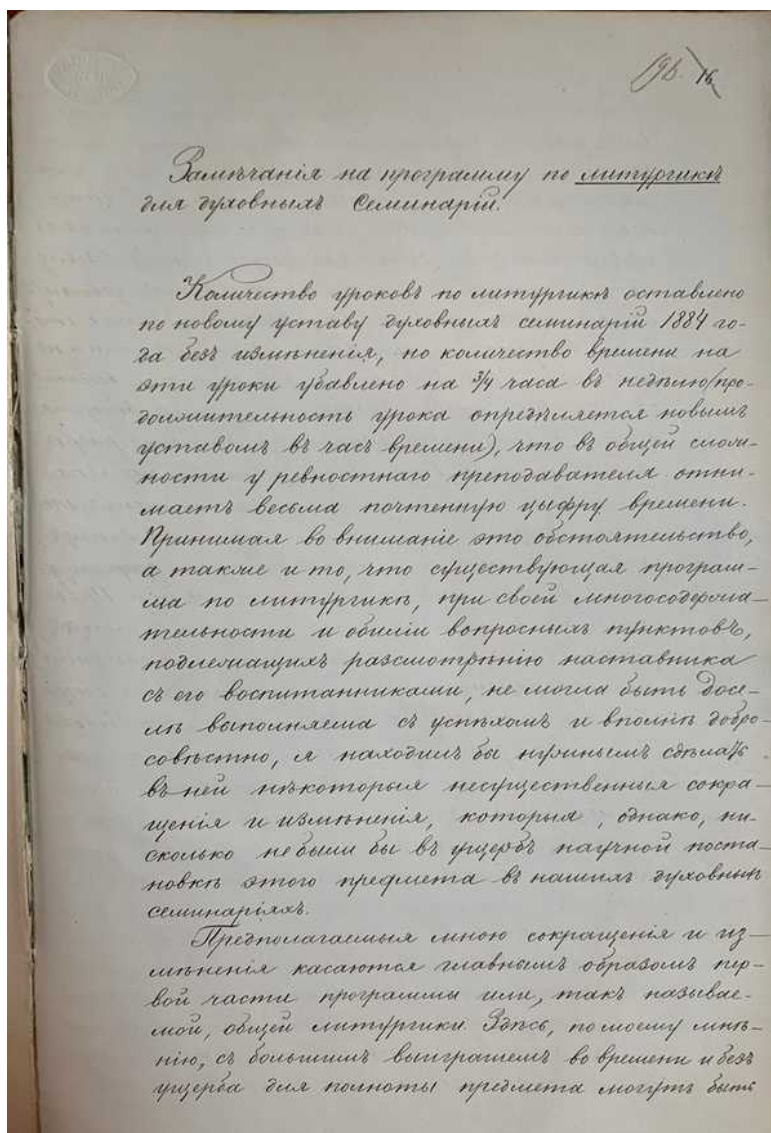 196. 16
Замѣчанія на программу по литургикѣ
для духовныхъ семинарій.
Количество уроковъ по литургикѣ оставлено
по новому уставу духовныхъ семинарій 1884 го-
да безъ измѣненія, но количество времени на
эти уроки убавлено на 3/4 часа въ недѣлю (про-
должительность урока опредѣляется новымъ
уставомъ въ часъ времени), что въ общей слож-
ности у ревностнаго преподавателя отни-
маетъ весьма почтенную цыфру времени.
Принимая во вниманіе это обстоятельство,
а также и то, что существующая програм-
ма по литургикѣ, при своей многосодержа-
тельности и обиліи вопросныхъ пунктовъ,
подлежащихъ разсмотрѣнію наставника
съ его воспитанниками, не могла быть досе-
лѣ выполняема съ успѣхомъ и вполнѣ добро-
совѣстно, я находилъ бы нужнымъ сдѣлать
въ ней нѣкоторыя несущественныя сокра-
щенія и измѣненія, которыя, однако, ни-
сколько не были бы въ ущербъ научной поста-
новкѣ этого предмета въ нашихъ духовныхъ
семинаріяхъ.
Предполагаемыя мною сокращенія и из-
мѣненія касаются главнымъ образомъ пер-
вой части программы или, такъ называе-
мой, общей литургики. Здѣсь, по моему мнѣ-
нію, съ большимъ выигрышемъ во времени и безъ
ущерба для полноты предмета могутъ быть